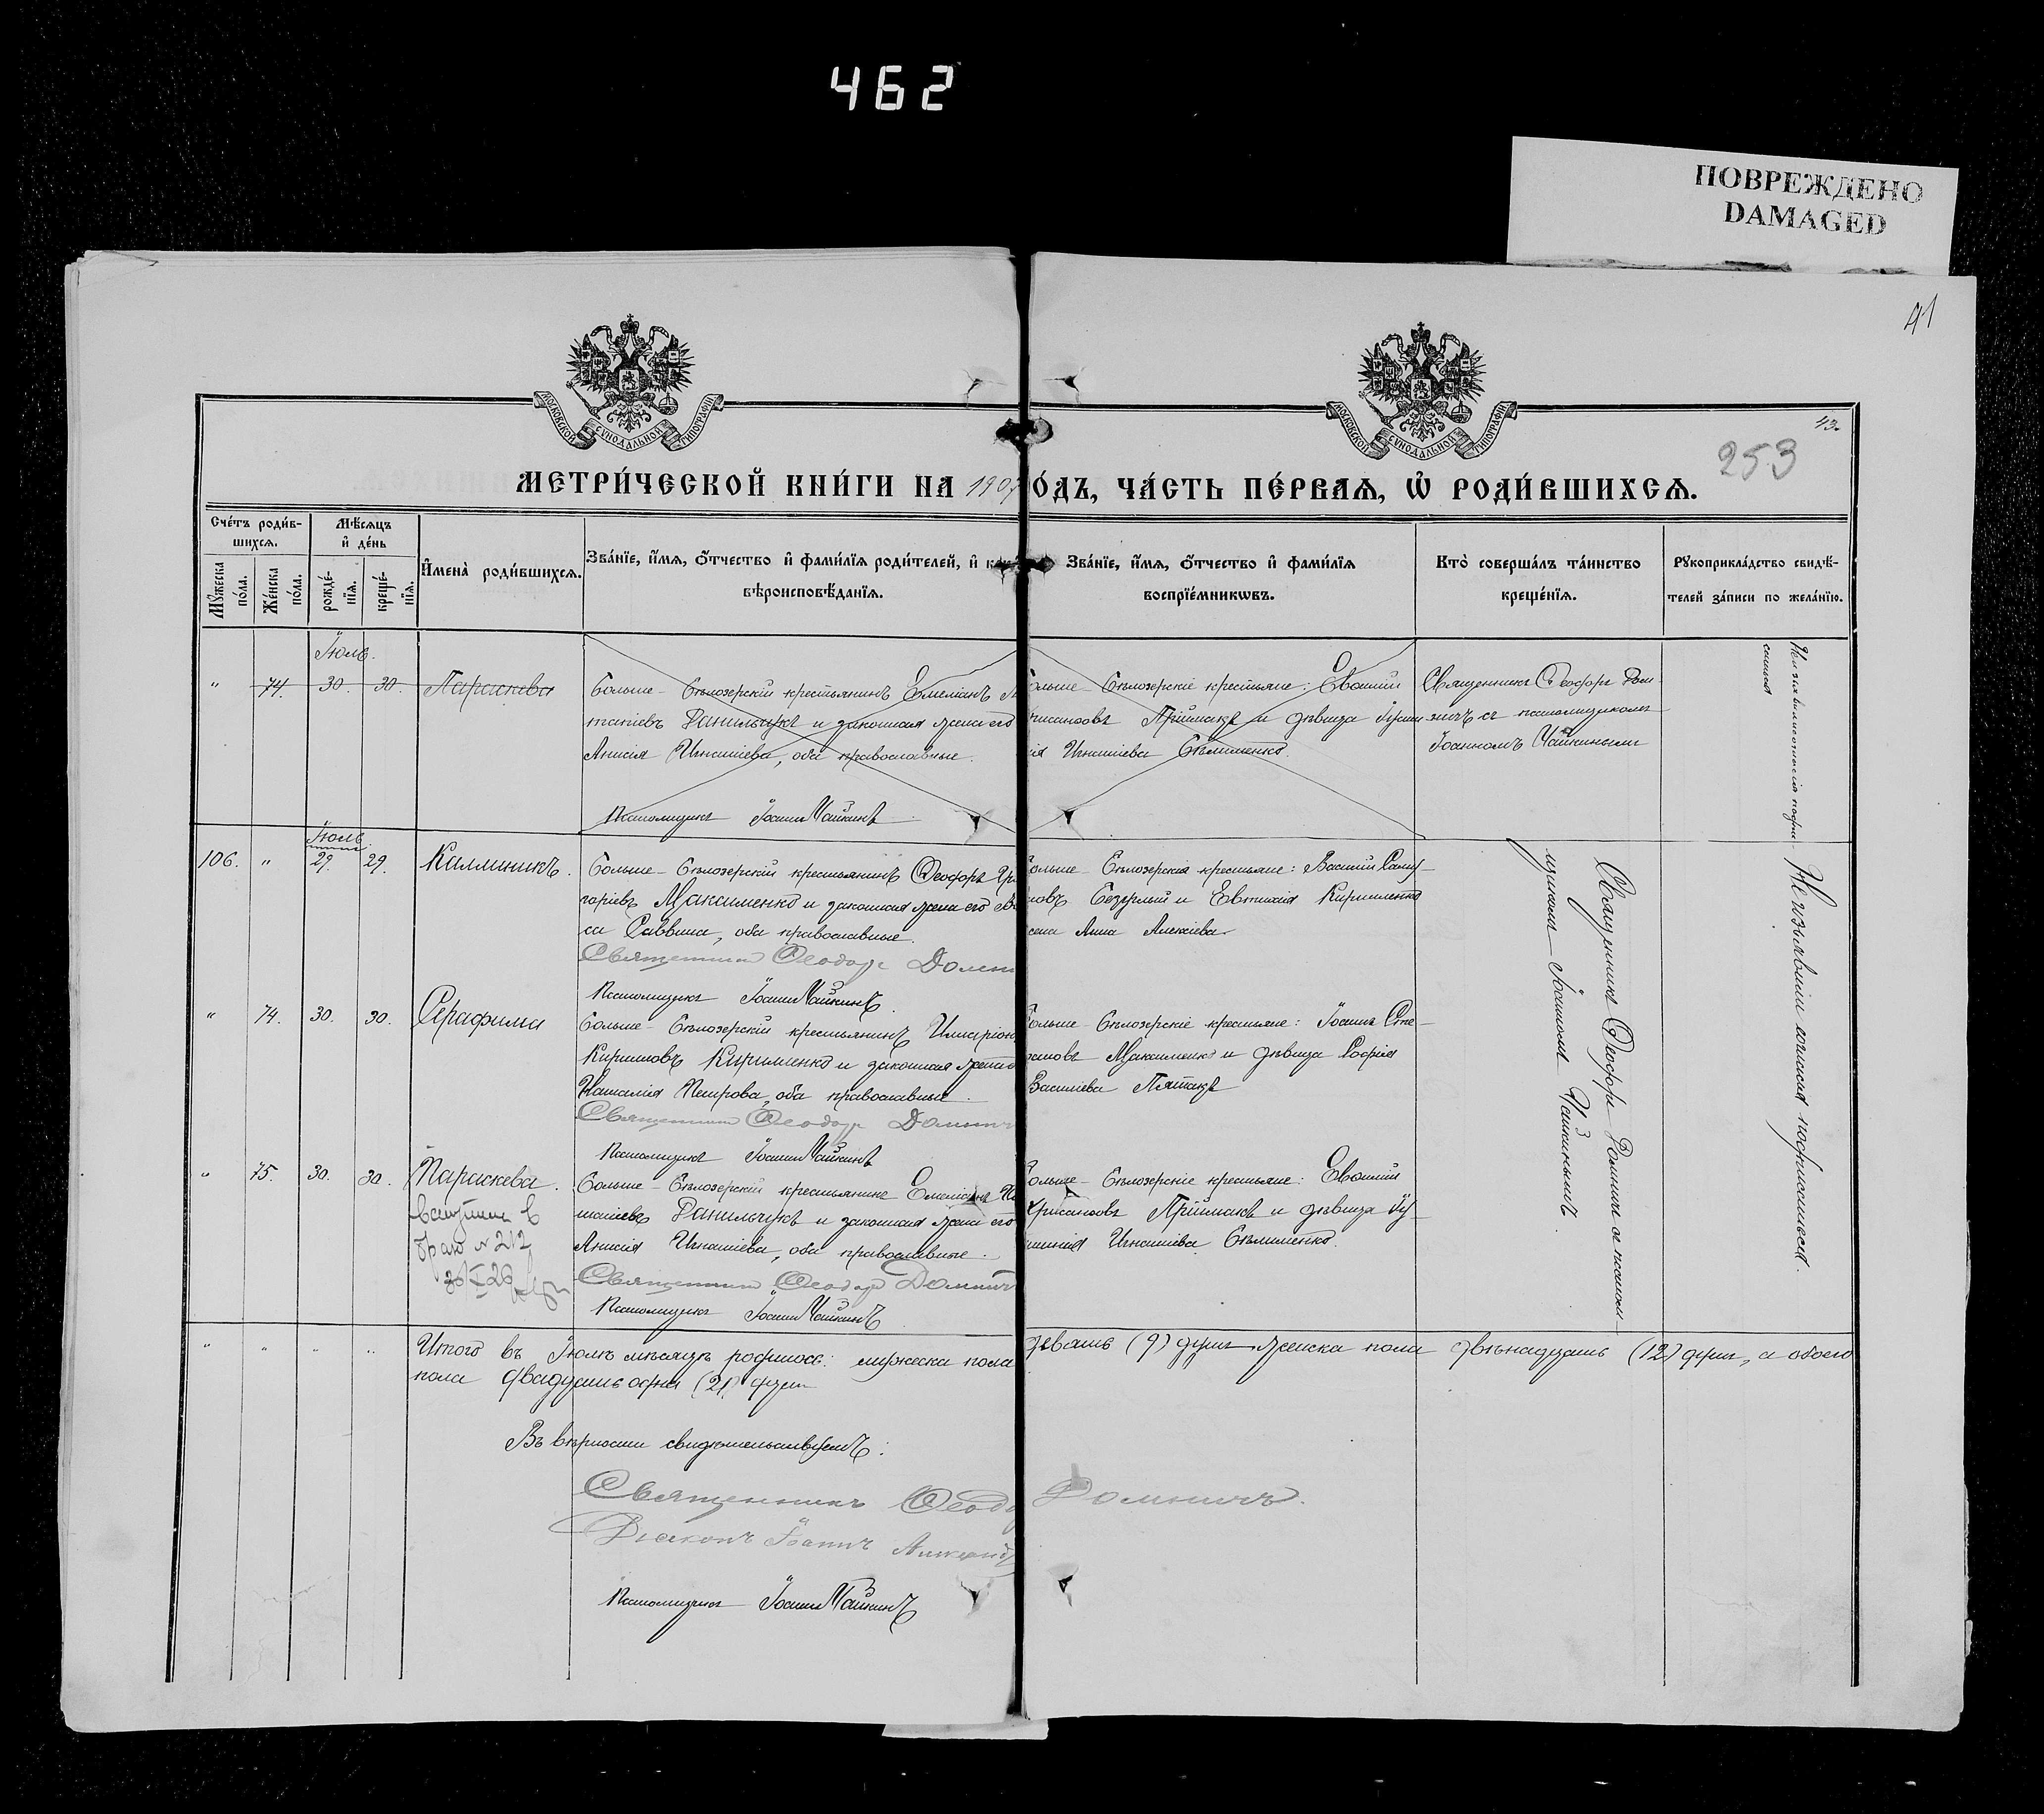 462
ПОВРЕЖДЕНО
DAMAGED
41
43.
253
МОСКОВСКОЙ СѴНОДАЛЬНОЙ ТИПОГРАФІИ
МОСКОВСКОЙ СѴНОДАЛЬНОЙ ТИПОГРАФІИ
МЕТРИ́ЧЕСКОЙ КНИ́ГИ НА 1907 О́ДЪ, ЧА́СТЬ ПЕ́РВАЯ, Ѽ РОДИ́ВШИХСЯ.
Сче́тъ роди́в-
шихся.
Мꙋ́жеска по́ла.
Же́нска по́ла.
Мѣ́сяцъ и де́нь
рожде́-
нїя.
креще́-
нїя.
И҆мена̀ роди́вшихся.
Зва́нїе, и҆́мя, ѻ҆́тчество и҆ фами́лїя роди́телей, и҆ как
вѣроисповѣ́данїя.
Зва́нїе, и҆́мя, ѻ҆́тчество и҆ фами́лїя
воспрїе́мникѡвъ.
Кто̀ соверша́лъ та́инство
креще́нїя.
Рꙋкоприкла́дство свидѣ́-
телей за́писи по жела́нїю.
Іюль.
" 74. 30. 30. Параскева
Больше-Бѣлозерскій крестьянинъ Емеліанъ
Данильчукъ и законная жена его
Анисія Игнатіева, оба православные.
Псаломщикъ Іоаннъ Чайкинъ
ольше-Бѣлозерскіе крестьяне: Евфимій
рисанфовъ Пріймакъ и дѣвица
Игнатіева Бѣлименко.
Священникъ Ѳеодоръ Дом-
ничъ съ псаломщикомъ
Іоанномъ Чайкинымъ
Не изъявили согласія подпи
саться
Іюль
106. " 29. 29. Каллиникъ.
Больше-Бѣлозерскій крестьянинъ Ѳеодоръ Гри
горіевъ Максименко и законная жена его Ва
са Саввина, оба православные.
Священникъ Ѳеодоръ Домни
Псаломщикъ Іоаннъ Чайкинъ.
ольше-Бѣлозерскіе крестьяне: Василій
и Евтихія Кириленко
жена Анна Алексіева
Священникъ Ѳеодоръ Домничъ съ псалом-
щикомъ Іоанномъ Чайкинымъ.
Не изъявили согласія подписаться.
" 74. 30. 30. Серафима
Больше-Бѣлозерскій крестьянинъ Иларіонъ
Кирилловъ Кириленко и законная жена
Наталія Петрова, оба православные.
Священникъ Ѳеодоръ Домничъ
Псаломщикъ Іоаннъ Чайкинъ
ольше-Бѣлозерскіе крестьяне: Іоаннъ Сте-
фановъ Максименко и дѣвица Софія
Василіева Пятакъ
" 75. 30. 30. Параскева.
вступила в
брак № 212
Больше-Бѣлозерскій крестьянинъ Емеліанъ
Данильчукъ и законная жена его
Анисія Игнатіева, оба православные.
Священникъ Ѳеодоръ Домничъ
Псаломщикъ Іоаннъ Чайкинъ
ольше-Бѣлозерскіе крестьяне: Евфимій
Хрисанфовъ Пріймакъ и дѣвица Іу-
Игнатіева Бѣлименко.
" " " "
Итого въ Іюлѣ мѣсяцѣ родилось: мужеска пола девять (9) душъ, женска пола двѣнадцать (12) душъ, а обоего
пола двадцать одна (21) душа
Въ вѣрности свидѣтельствуемъ:
Священникъ Ѳеодо Домничъ.
Діаконъ Іоаннъ
Псаломщикъ Іоаннъ Чайкинъ